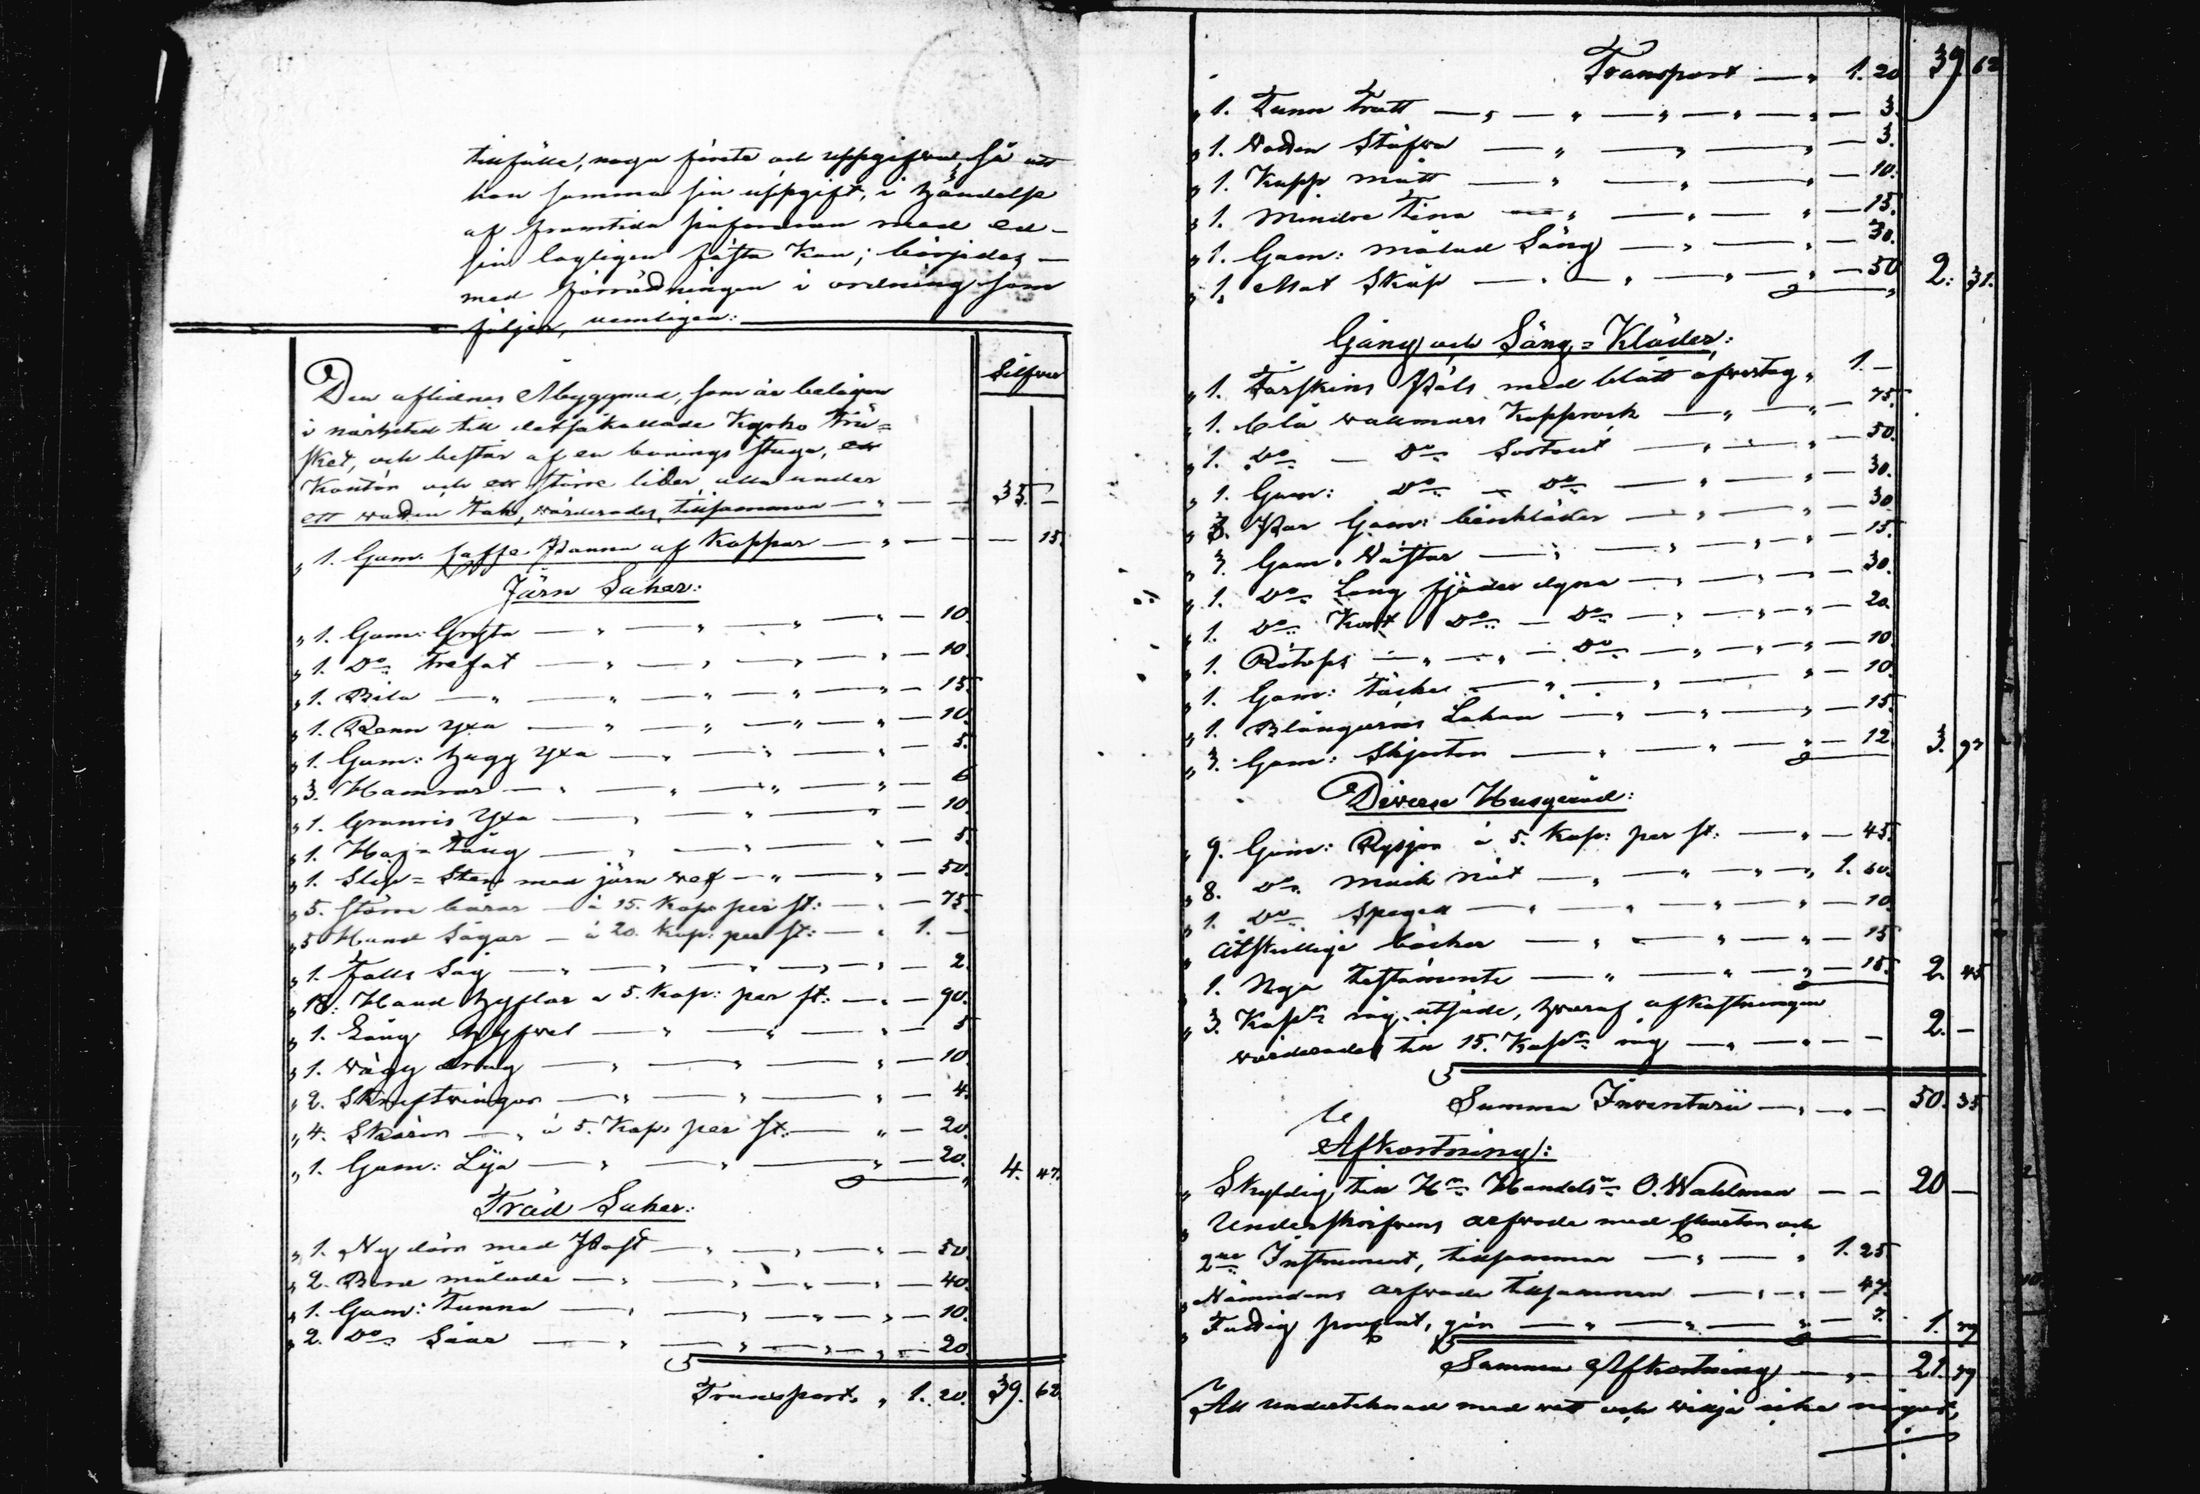 tillfälle, noga förete och uppgifva, så att
han samma sin uppgift, i händelse
af framtida påfordran med ed
sin lagligen fästa kan; börjades
med förrättningen i ordning som
följer, nemligen:
Silfver
Den aflidnes Åbyggnad, som är belägen
i närheten till det så kallade Kyrko Trä=
sket, och består af en bonings stuga, en
Kontor och en större lider, alla under
ett tak, värderades tillsamman — " — — 35. —
" 1. Gam: Caffe Panna af Koppar — " — — — 15.
Järn Saker:
" 1. Gam: Gryta — " — " — " — " — 10.
" 1. Do Trefot — " — " — " — " — 10.
" 1. Bila — " — " — " — " — " — 15.
" 1. Yxa — " — " — " — " — 10.
" 1. Gam: hugg Yxa — " — " — " — 5.
" 3. Hamrar — " — " — " — " — 6
" 1. Yxa — " — " — " — 10.
" 1. Tång — " — " — " — 5.
" 1. Slip= Sten med järn vef — " — " — 50.
" 5. Större — à 15. Kop: per st: — " — 75.
" 5 Hand Sågar — à 20. Kop: per st: — " 1. —
" 1. Såg — " — " — " — " — " — 2.
" 18. Hand hyflar à 5. Kop: per st: — " — 90.
" 1. Lång hyfvel — " — " — " — 5
" 1. — " — " — " — 10.
" 2. — " — " — " — 4.
" 4. Skäror — " à 5. Kop: per st: — " — 20.
" 1. Gam: Lija — " — " — " — 20. 4. 47.
Träd Saker:
" 1. Ny dörr med — " — " — " — 50.
" 2. Bord målade — " — " — " — " — 40.
" 1. Gam: Tunna — " — " — " — " — 10.
" 2. Do Såar — " — " — " — " — 20.
Transport " 1. 20. 39. 62.
Transport — " 1. 20 39. 62
" 1. Tratt — " — " — " — " — " — 3.
" 1. Stäfva — " — " — " — 3.
" 1. Kapp mått — " — " — " — 10.
" 1. Mindre Tina — " — " — " — 15.
" 1. Gam: målad Säng — " — " — 30.
" 1. Mat Skåp — " — " — " — " — 50 2. 31.
Gång och Säng= Kläder:
" 1. Fårskins Päls med blått öfvertag " 1. —
" 1. blå vallmars Kapprock — " — " — 75.
" 1. Do — Do Sortout — " — " — 50.
" 1. Gam: Do — Do — " — " — 30.
" 3. Par Gam: benkläder — " — " — 30
" 3. Gam: Västar — " — " — " — 15.
" 1. Do Lång fjäder dyna — " — " — 30.
" 1. Do Kort Do — Do — " — " — 20.
" 1. — " — " — Do — " — " — 10.
" 1. Gam: täcke — " — " — " — 10.
" 1. Blångarns Lakan — " — " — " — 15.
" 3. Gam: Skjortor — " — " — " — 12. 3. 97
Diverse Husgeråd:
" 9. Gam: Ryssjor à 5. Kop: per st: — " — 45.
" 8. Do nät — " — " — " — " 1. 60.
" 1. Do Spegel — " — " — " — " — 10.
" Åtskillige böcker — " — " — " — " — 15
" 1. Nya testamente — " — " — " — 15. 2. 45
" 3. Kapr råg utsäde, hvaraf afkastningen
värderades till 15. Kapr råg — " — " — — 2. —
Summa Inventarii — " — " — 50. 35.
Afkortning:
" Skyldig till Hr Handelsn O. Wahlman — — 20 —
" Underskrifvens arfvode med Charta och
2ne Instrument, tillsamman — " — " 1. 25.
" Nämndens arfvode tillsamman — " — " — 47.
" Fattig procent, gör — " — " — " — 7. 1. 79
Summa Afkortning — " — 21. 79
All undertecknad med vett och vilja icke något,